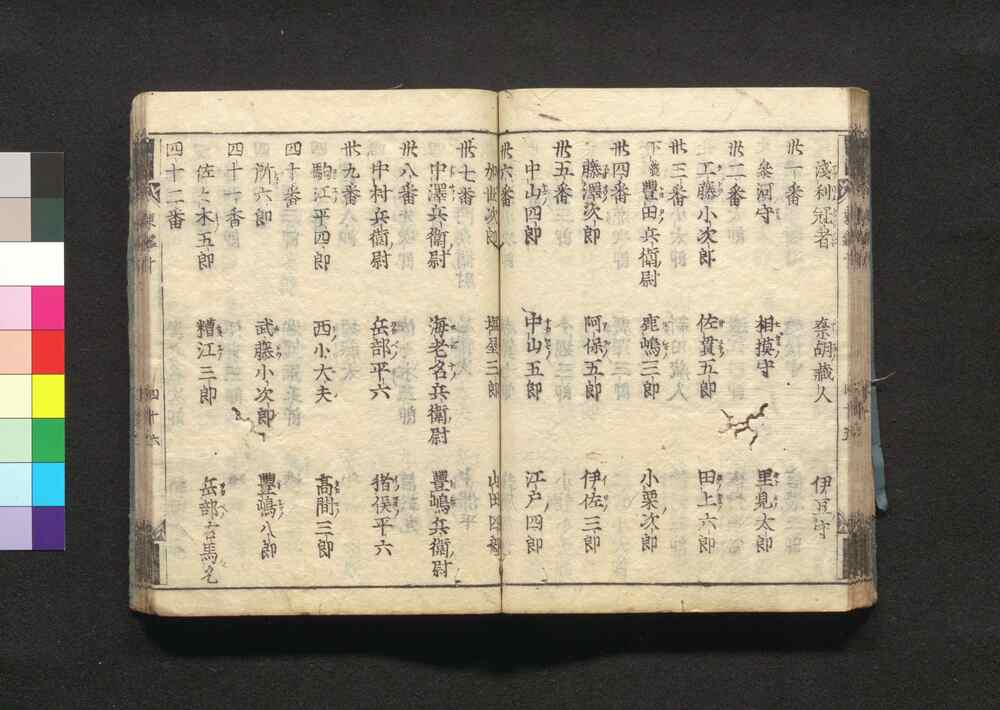 淺利冠者 奈胡藏人 伊豆守
卅一番
參河守 相摸守 里見太郎
卅二番
工藤小次郎 佐貫五郎 田上六郎
卅三番
下 豐田兵衞尉 鹿嶋三郎 小栗次郎
卅四番
藤澤次郎 阿保五郎 伊佐三郎
卅五番
中山四郎 中山五郎 江戸四郎
卅六番
加世次郎 塩屋三郎 山田四郎
卅七番
中澤兵衞尉 海老名兵衞尉 豐嶋兵衞尉
卅八番
中村兵衞尉 岳部平六 猪俣平六
卅九番
駒江平四郎 西小大夫 髙間三郎
四十番
所六郎 武藤小次郎 豐嶋八郎
四十一番
佐々木五郎 糟江三郎 岳部右馬允
四十二番